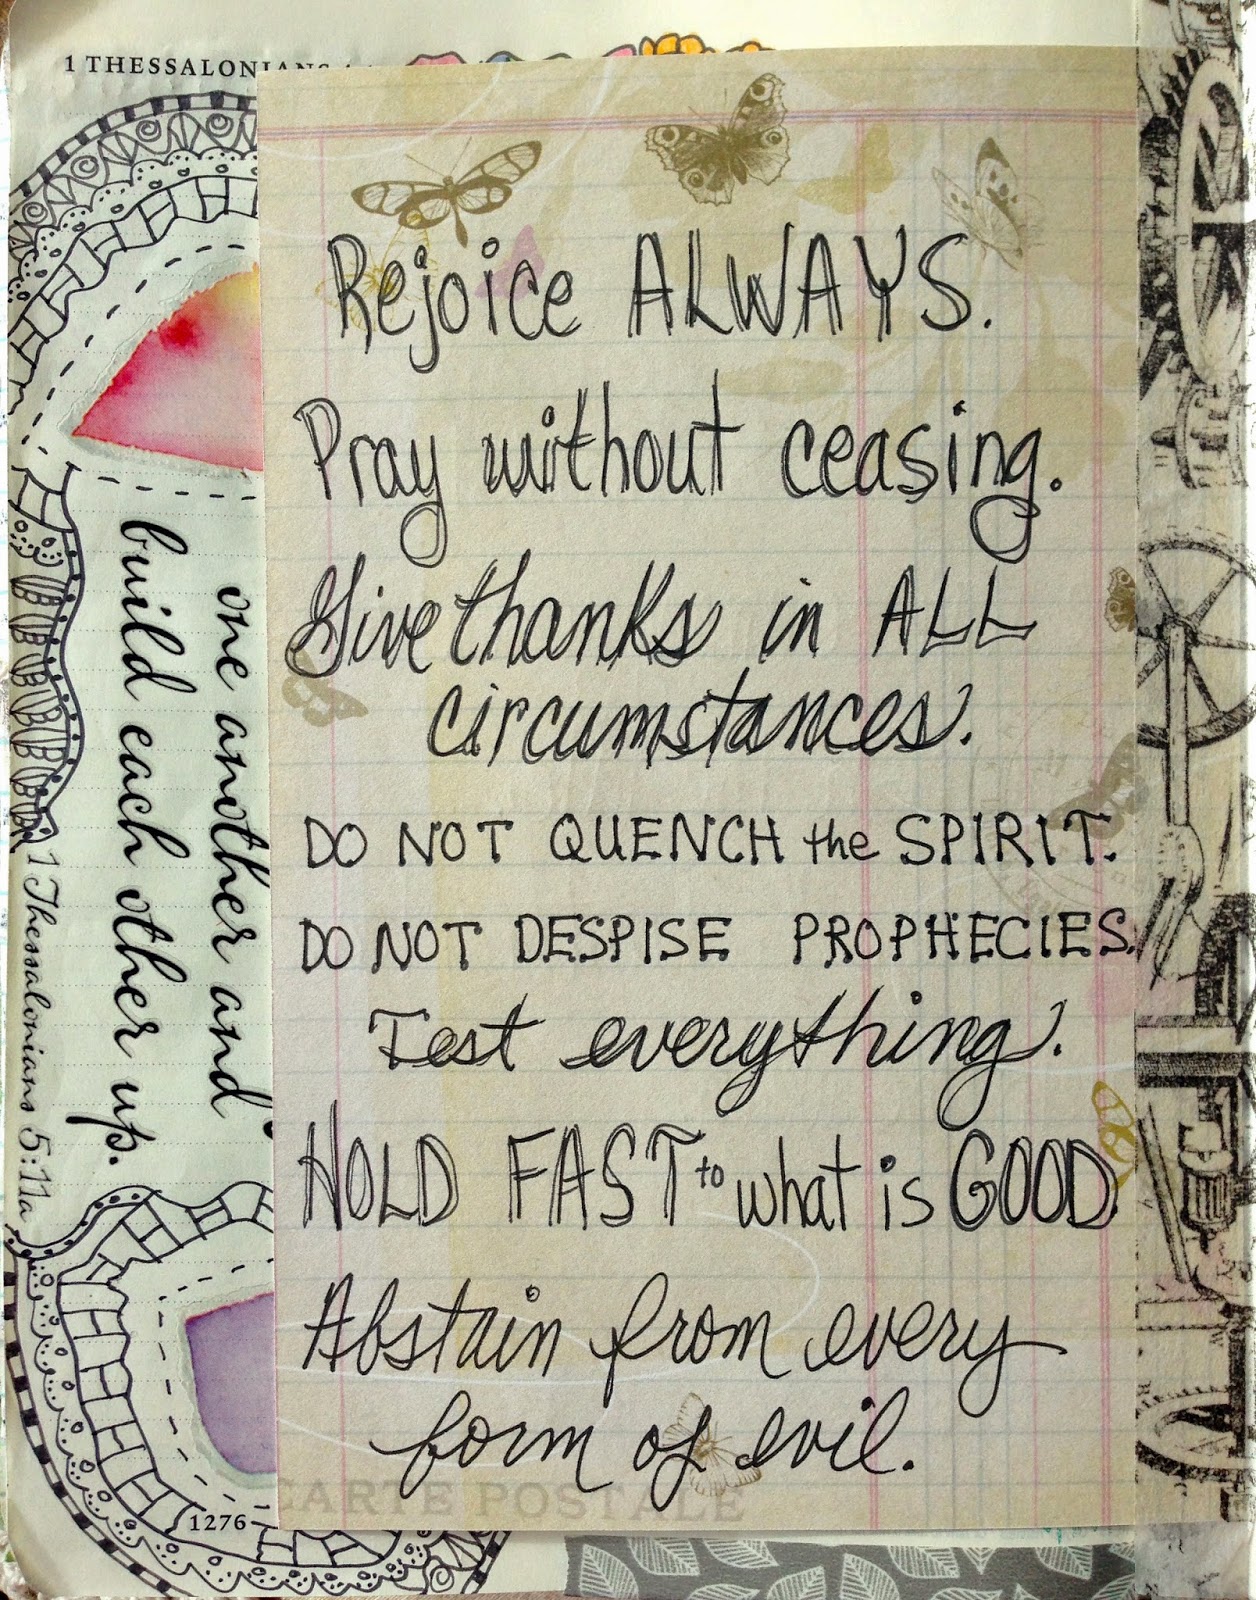 1 THESSALONIANS
Rejoice ALWAYS.
Pray without ceasing.
Give thanks in ALL
circumstances.
DO NOT QUENCH the SPIRIT.
DO NOT DESPISE PROPHECIES.
Test everything.
HOLD FAST to what is GOOD.
Abstain from every
form of evil.
CARTE POSTALE
one another and
build each other up.
1 Thessalonians 5:11a
1276